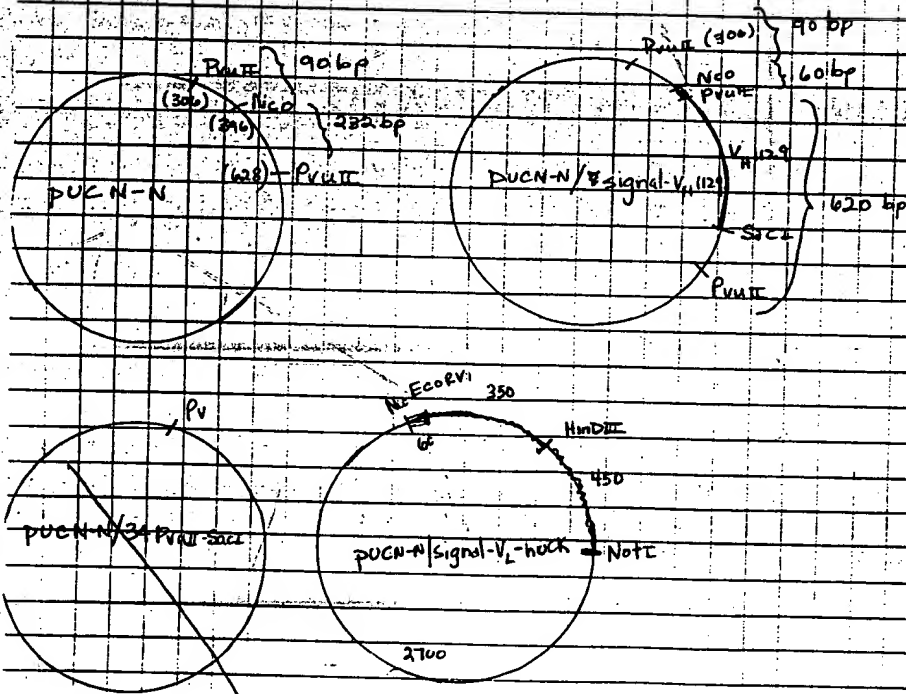 PvuII } 90 bp
(306) NcoI
(396) } 232 bp
(628) - PvuII
pUCN-N
PvuII (306) } 90 bp
Nco } 60 bp
PvuII
VH 1129
pUCN-N/signal-VH 1129
620 bp
SacI
PvuII
Pv
pUCN-N/34 PvuII-SacI
EcoRVI
350
HinDIII
450
pUCN-N/signal-VL-huCK
NotI
2700